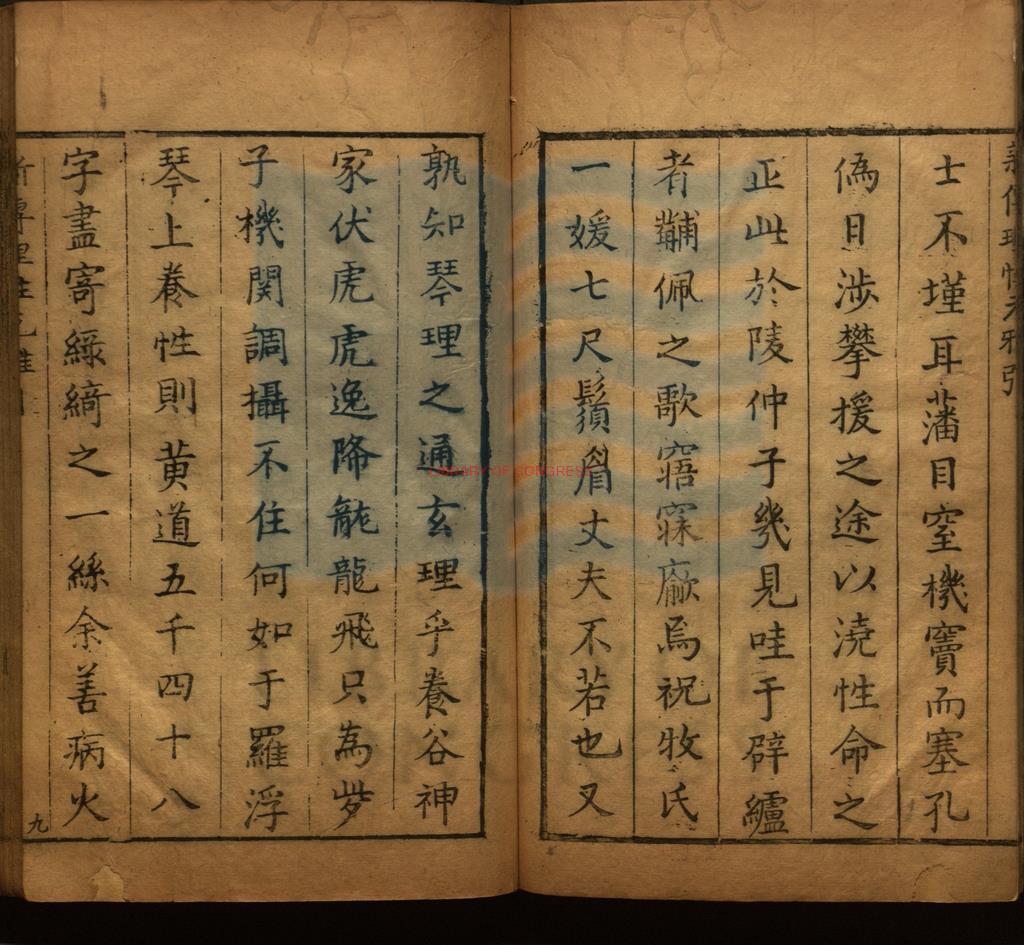 士不墐耳藩目窒機竇而塞孔
偽日涉攀援之途以澆性命之
正此於陵仲子幾見哇于辟纑
者黼佩之歌寤寐厰焉祝牧氏
一媛七尺鬚眉丈夫不若也又
孰知琴理之通玄理乎養谷神
家伏虎虎逸降龍龍飛只為
子機関調攝不住何如于羅浮
琴上養性則黄道五千四十八
字盡寄綠綺之一絲余善病火
九
LIBRARY OF CONGRESS